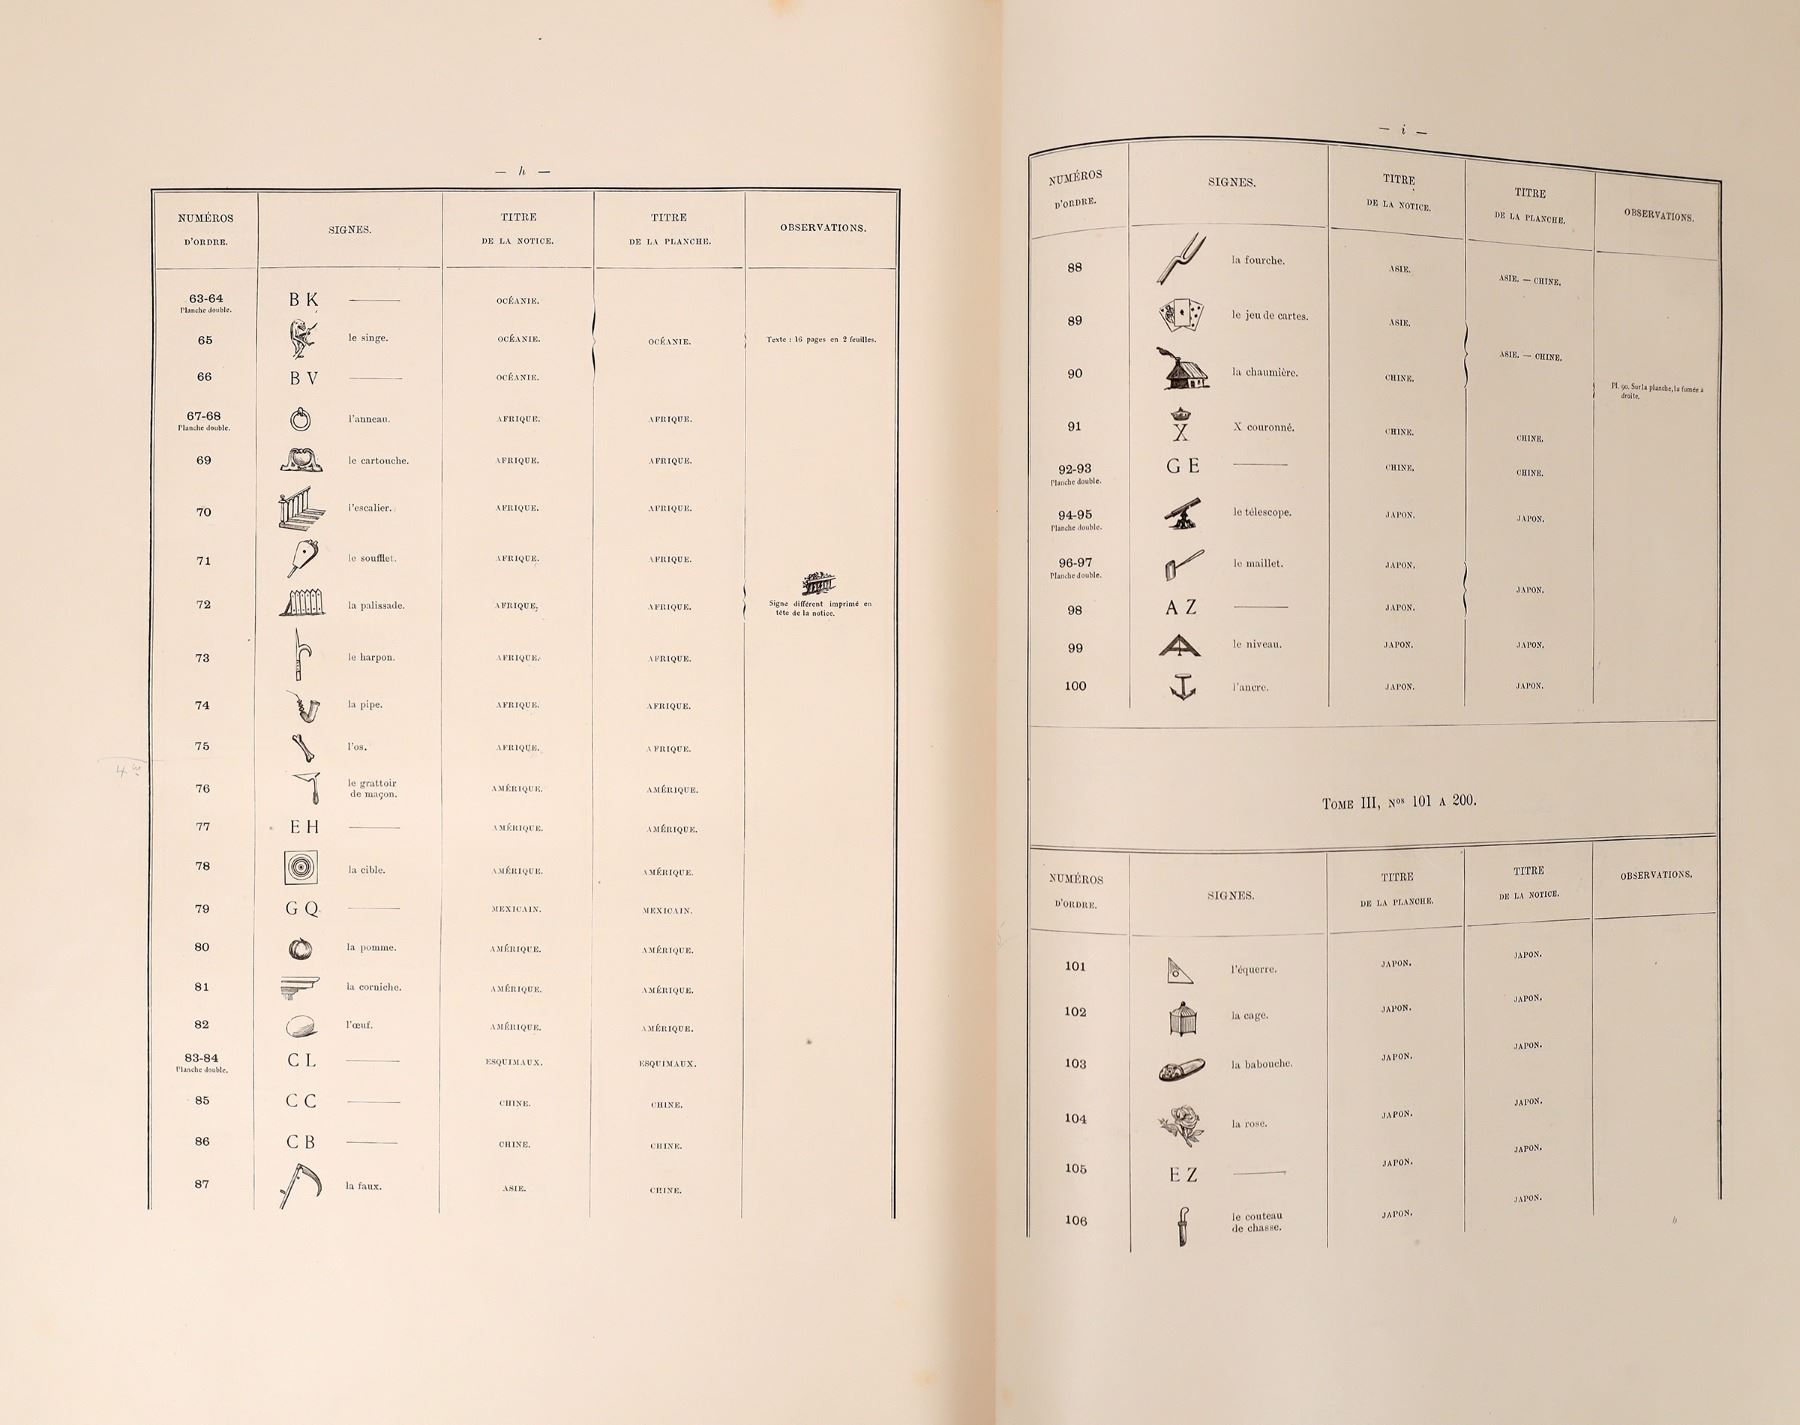 — h —
NUMÉROS D'ORDRE. SIGNES. TITRE DE LA NOTICE. TITRE DE LA PLANCHE. OBSERVATIONS.
63-64 Planche double. B K —— OCÉANIE.
65 le singe. OCÉANIE. OCÉANIE. Texte : 16 pages en 2 feuilles.
66 B V —— OCÉANIE.
67-68 Planche double. l'anneau. AFRIQUE. AFRIQUE.
69 le cartouche. AFRIQUE. AFRIQUE.
70 l'escalier. AFRIQUE. AFRIQUE.
71 le soufflet. AFRIQUE. AFRIQUE.
72 la palissade. AFRIQUE. AFRIQUE. Signe différent imprimé en tête de la notice.
73 le harpon. AFRIQUE. AFRIQUE.
74 la pipe. AFRIQUE. AFRIQUE.
75 l'os. AFRIQUE. AFRIQUE.
76 le grattoir de maçon. AMÉRIQUE. AMÉRIQUE.
77 E H —— AMÉRIQUE. AMÉRIQUE.
78 la cible. AMÉRIQUE. AMÉRIQUE.
79 G Q —— MEXICAIN. MEXICAIN.
80 la pomme. AMÉRIQUE. AMÉRIQUE.
81 la corniche. AMÉRIQUE. AMÉRIQUE.
82 l'œuf. AMÉRIQUE. AMÉRIQUE.
83-84 Planche double. C L —— ESQUIMAUX. ESQUIMAUX.
85 C C —— CHINE. CHINE.
86 C B —— CHINE. CHINE.
87 la faux. ASIE. CHINE.
— i —
NUMÉROS D'ORDRE. SIGNES. TITRE DE LA NOTICE. TITRE DE LA PLANCHE. OBSERVATIONS.
88 la fourche. ASIE. ASIE. — CHINE.
89 le jeu de cartes. ASIE.
ASIE. — CHINE.
90 la chaumière. CHINE. Pl. 90. Sur la planche, la fumée à droite.
91 X X couronné. CHINE. CHINE.
92-93 Planche double. G E —— CHINE. CHINE.
94-95 Planche double. le télescope. JAPON. JAPON.
96-97 Planche double. le maillet. JAPON.
JAPON.
98 A Z —— JAPON.
99 le niveau. JAPON. JAPON.
100 l'ancre. JAPON. JAPON.
TOME III, Nos 101 A 200.
NUMÉROS D'ORDRE. SIGNES. TITRE DE LA PLANCHE. TITRE DE LA NOTICE. OBSERVATIONS.
101 l'équerre. JAPON. JAPON.
102 la cage. JAPON. JAPON.
103 la babouche. JAPON. JAPON.
104 la rose. JAPON. JAPON.
105 E Z —— JAPON. JAPON.
106 le couteau de chasse. JAPON. JAPON.